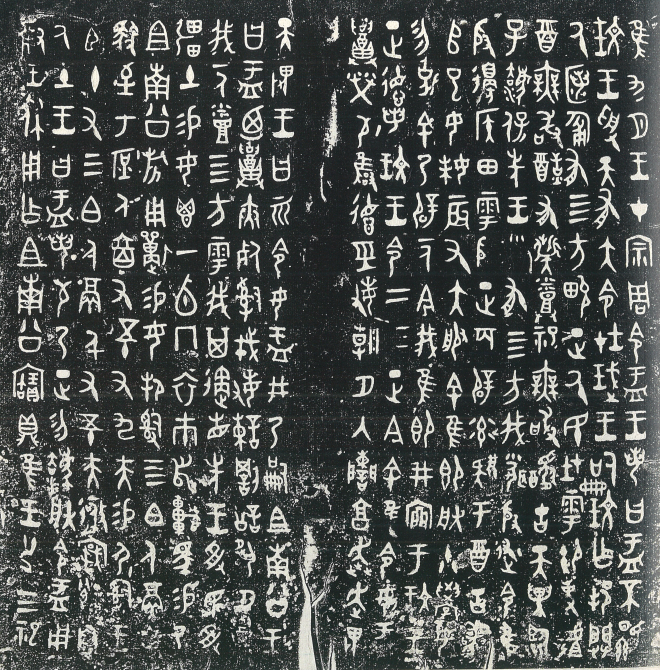 隹九月王才宗周令盂王若曰盂不
顯玟王受天有大令在珷王嗣玟乍邦闢
氒匿匍有四方畯正氒民在雩御事
酉無敢酖有祡烝祀無敢醻古天異臨
子灋保先王有四方我聞殷述令隹
殷邊侯田雩殷正百辟率肄于酉古
喪師巳女妹辰有大服余隹即朕小學女
勿余乃辟一人今我隹即井于玟王
正德若玟王令二三正今余隹令女盂
召榮敬雍德巠敏朝夕入讕享奔走畏
天畏王曰而令女盂井乃嗣且南公王
曰盂廼召夾死司戎敏諫罰訟夙夕召
我一人烝四方雩我其遹省先王受民受
疆土易女鬯一卣冂衣巿舄車馬易乃
且南公旂用易女邦司四白人鬲自
馭至于庶人六百又五十又九夫易尸司王
臣十又三白人鬲千又五十夫自
氒土王曰盂若敬乃正勿灋朕令盂用
對王休用乍且南公寶鼎隹王廿又三祀